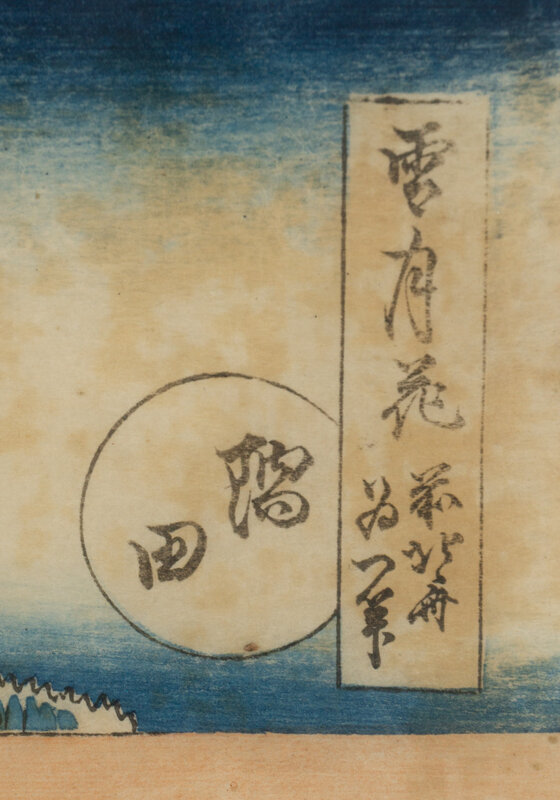 雪月花
前北斎
為一筆
隅
田